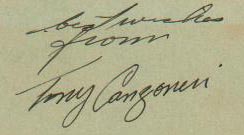 best wishes
from
Tony Canzoneri